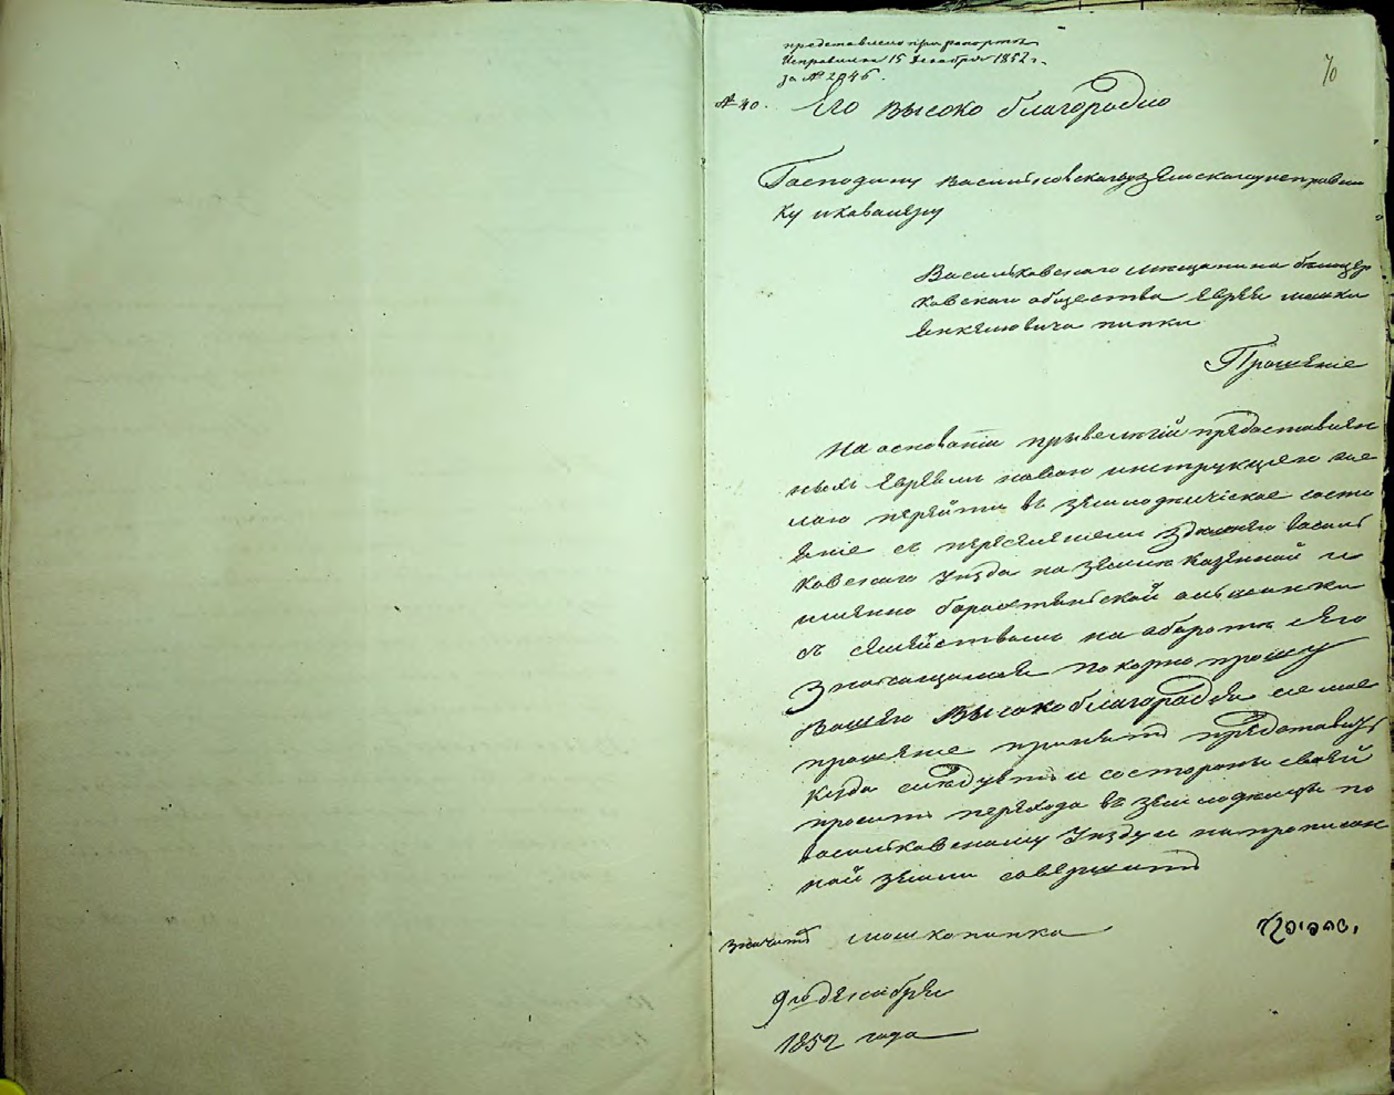 представлено при рапорте
Исправника 15 декабря 1852 г.
за № 2846.
70
№ 40. Его Высоко благородию
Господину Васильковскому земскому исправни
ку и кавалеру
Васильковского мещанина белоцер
ковского общества Еврея мошки
Янкелювича пипки
Прошение
На основании прывелегий предоставлен
ных Евреям новою инструкциею же
лаю перейти в земледелческое состо
яние с переселением Васил
ковского Уезда на землю казенной и
именно ольшанки
с семейством на обороте сего
покорно прошу
Вашего Высокоблагородия сие мое
прошение принять представить
куда следует и состороны своей
просить перехода в земледельцы по
Василковскому Уезду и на прописан
ной земли совершить
значит мошко пипка
פיפקי
9го декабря
1852 года